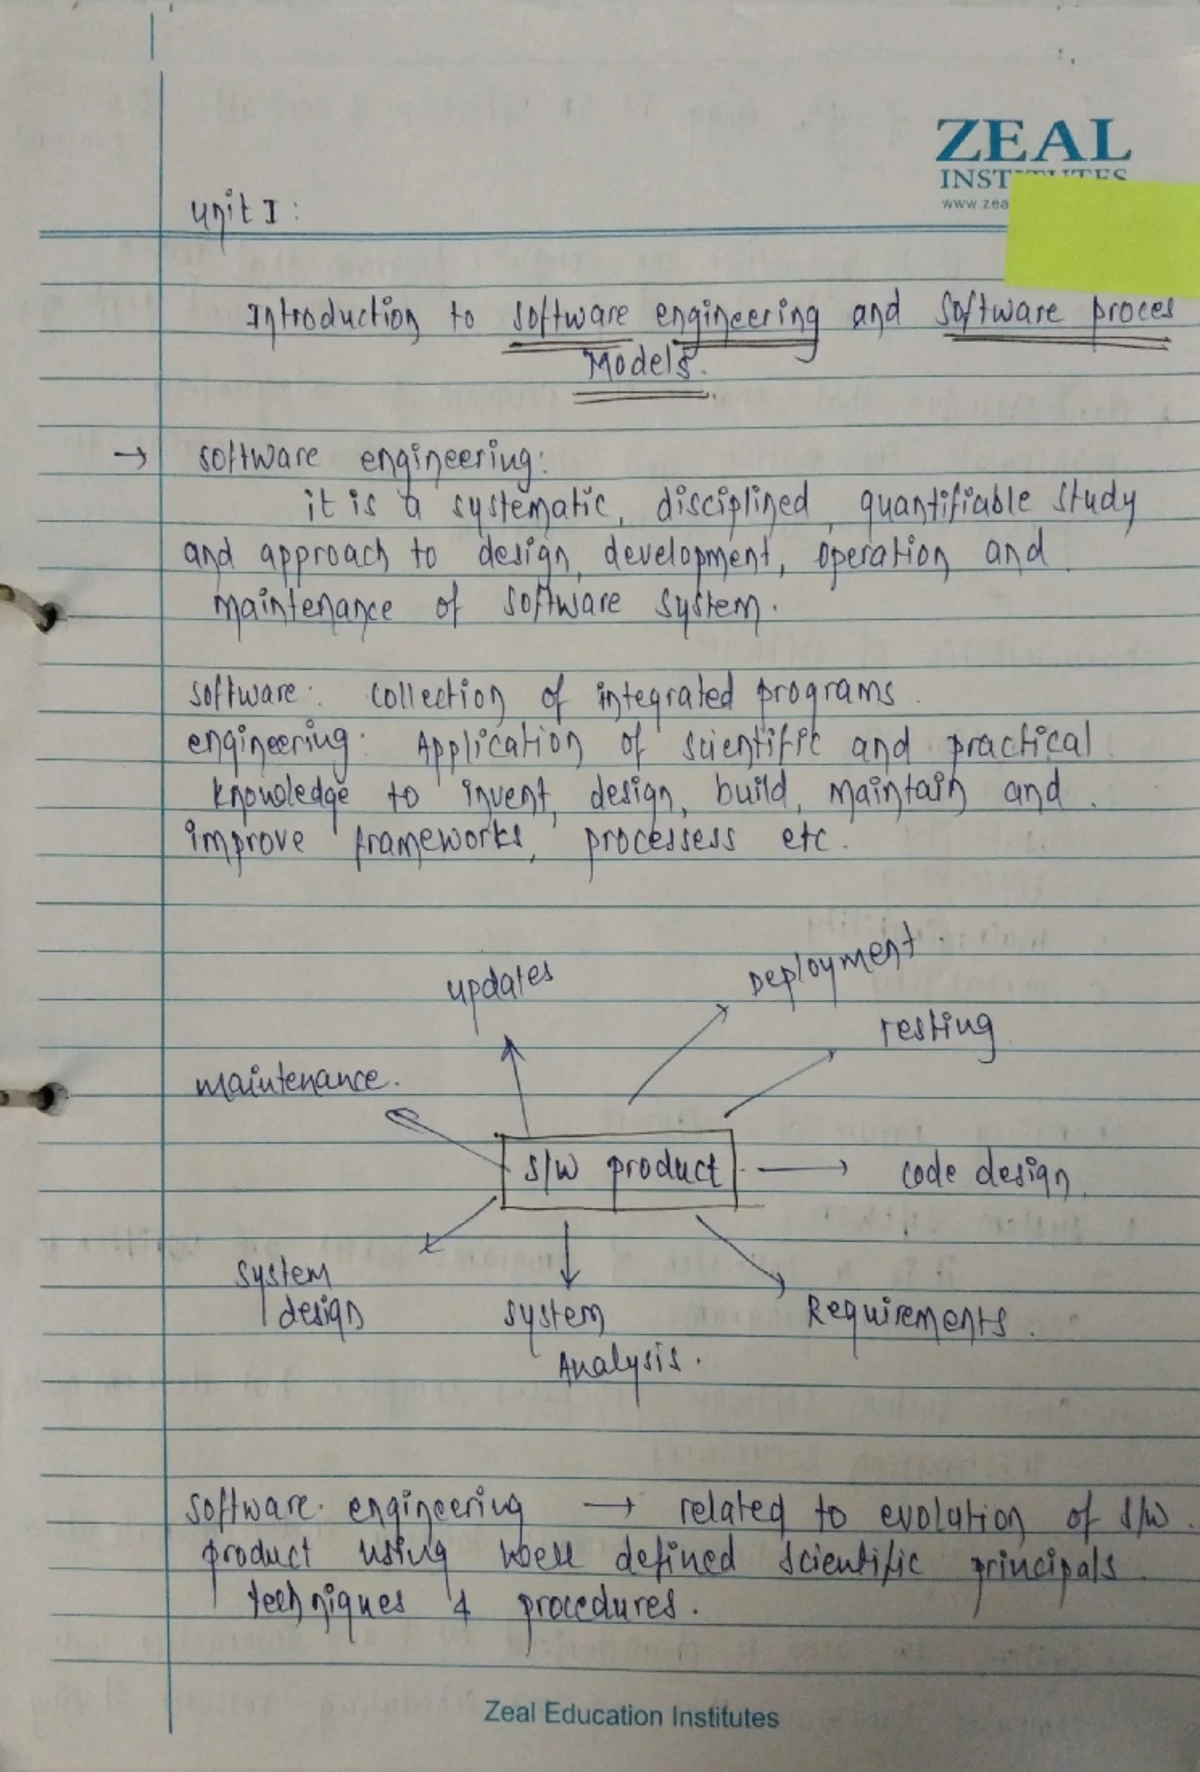 ZEAL
INSTITUTES
www.zea
Unit I :
Introduction to software engineering and software proces
Models.
→ software engineering:
it is a systematic, disciplined, quantifiable study
and approach to design, development, operation and
maintenance of software system.
software: collection of integrated programs.
engineering: Application of scientific and practical
knowledge to invent, design, build, maintain and
improve frameworks, processess etc.
updates
Deployment
Testing
maintenance.
S/W product
code design.
system
design
system
Analysis.
Requirements.
software engineering → related to evolation of s/w
product using well defined scientific principals
techniques & procedures.
Zeal Education Institutes